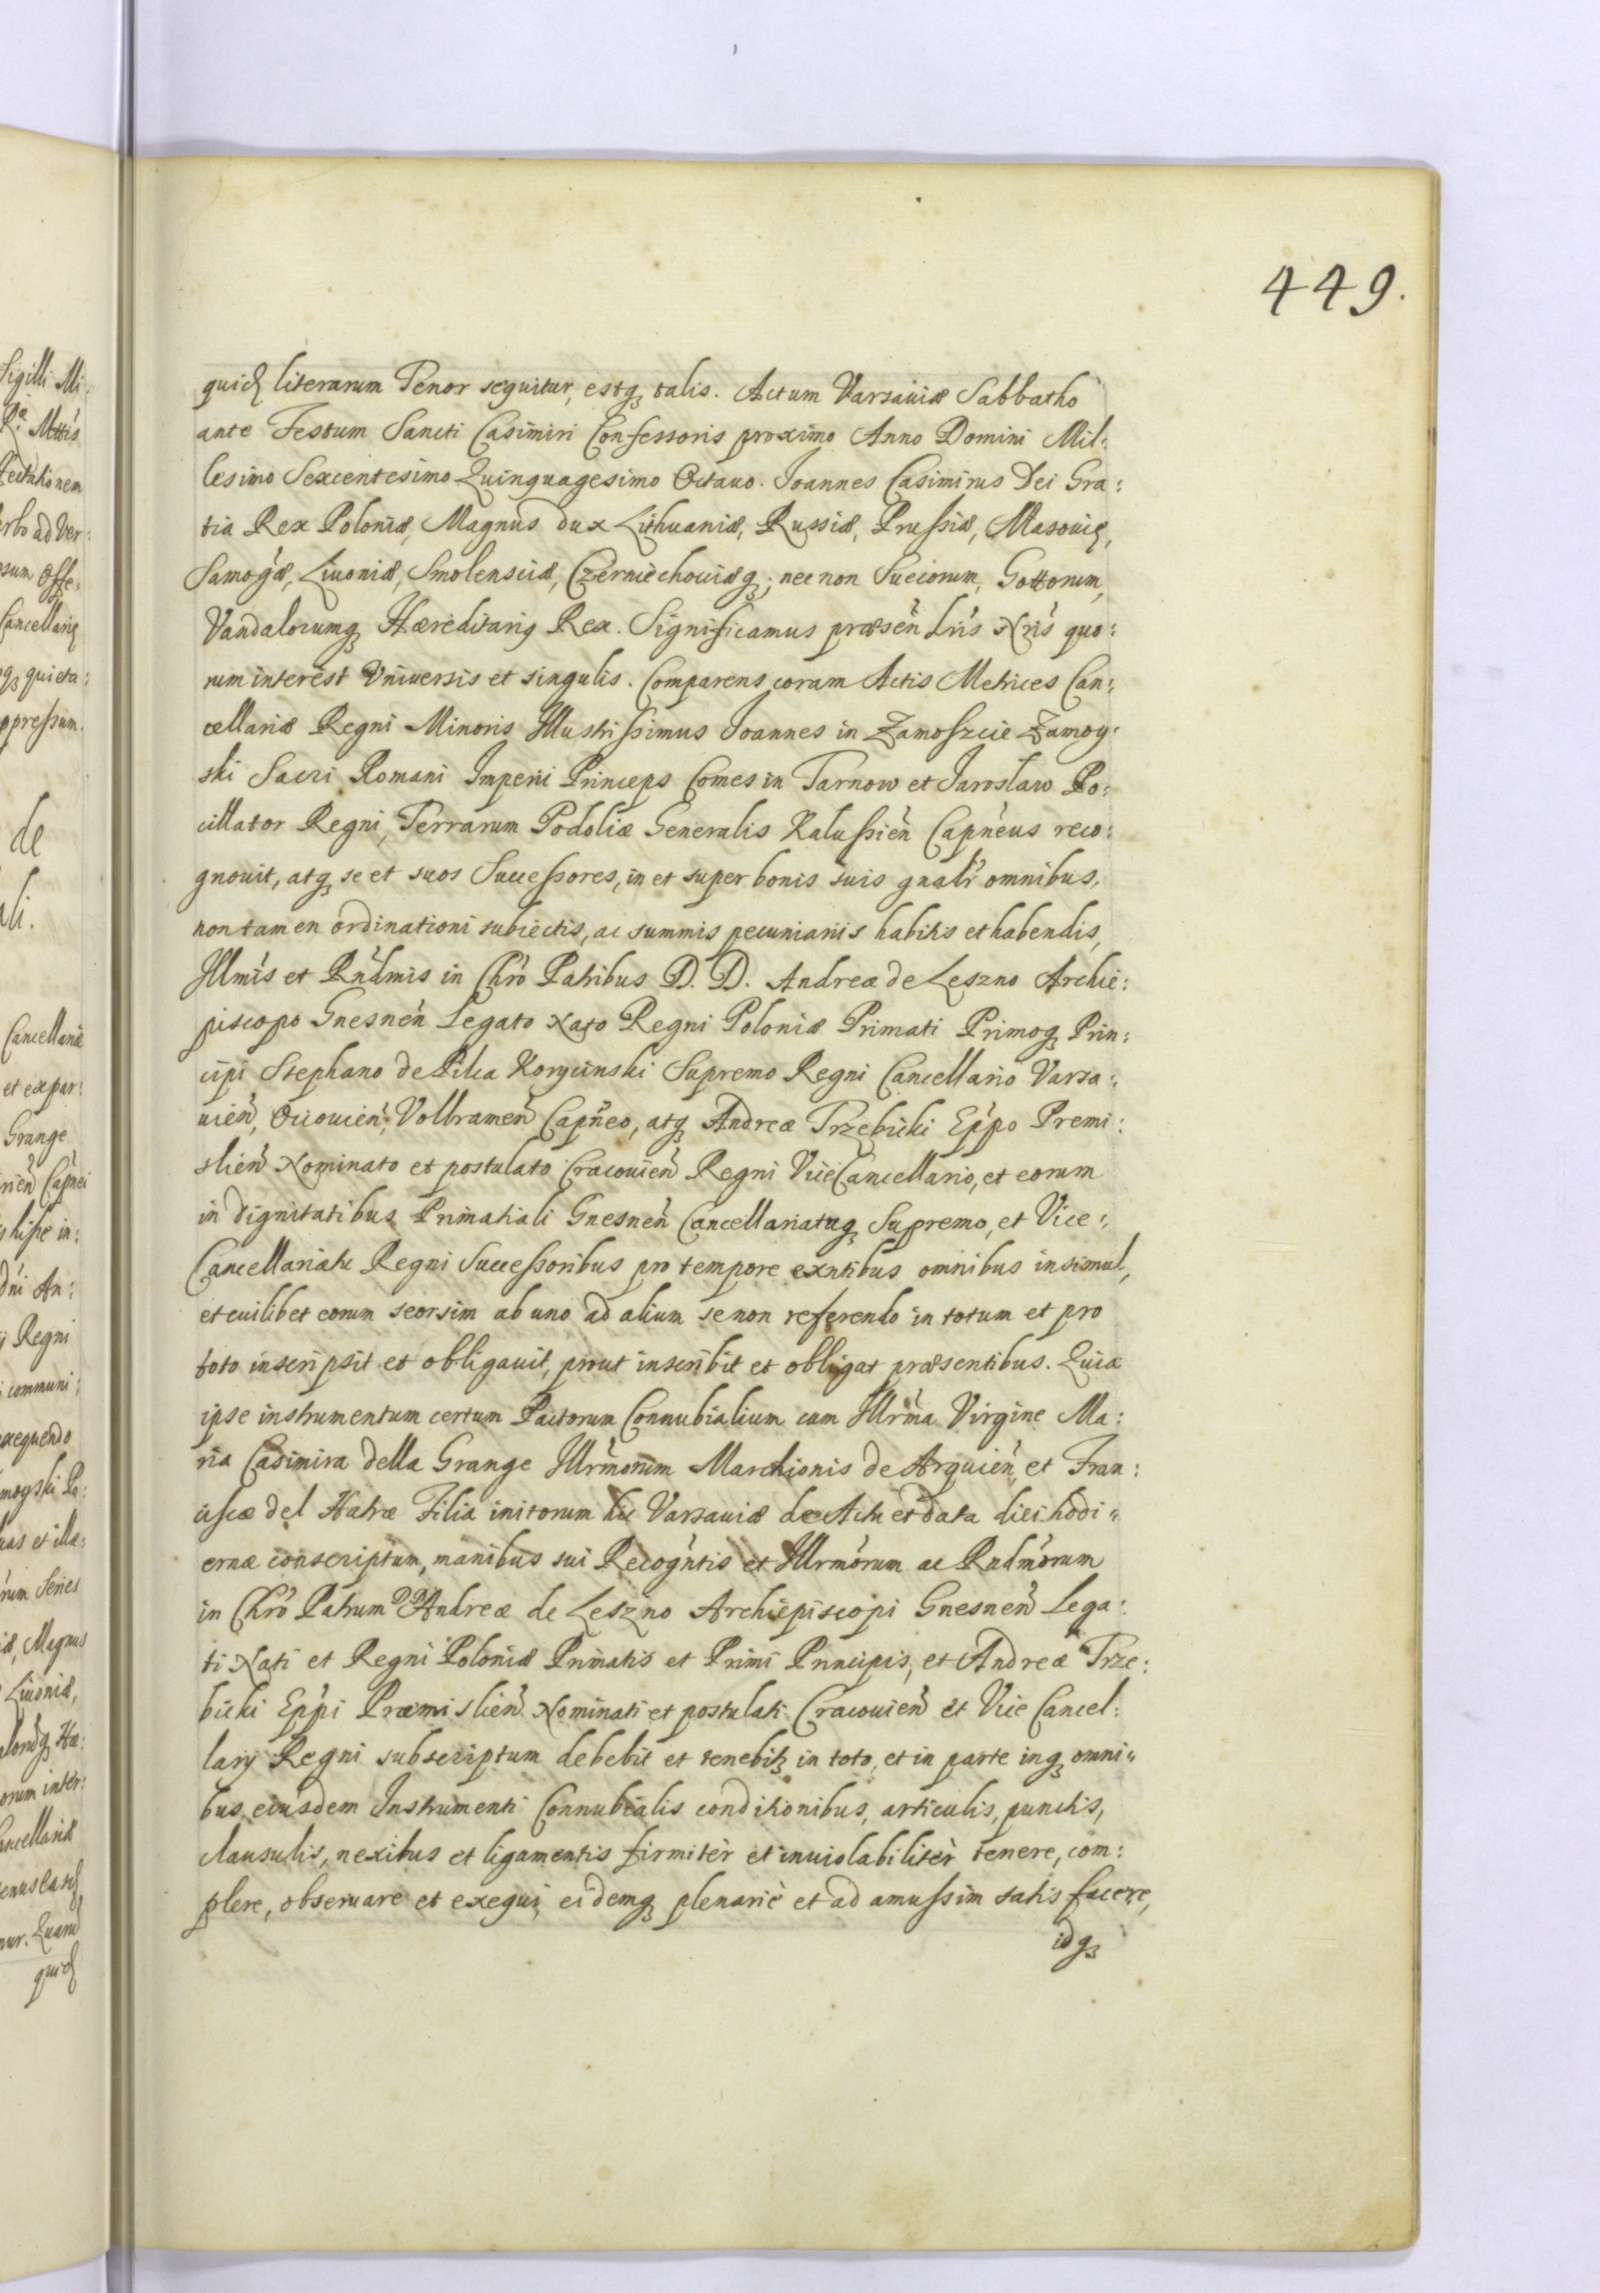 449.
quid literarum Tenor sequitur, estq talis. Actum Varsaviæ Sabbatho
ante Festum Sancti Casimiri Confessoris proximo Anno Domini Mil:
lesimo Sexcentesimo Quinquagesimo Octauo. Joannes Casimirus Dei Gra:
tia Rex Poloniæ, Magnus dux Lithuaniæ, Russiæ, Prussiæ, Masouię,
Samogæ, Liuoniæ, Smolensciæ, Czerniechouiæq; nec non Suecorum, Gottorum,
Vandalorumq Hæreditariq Rex. Significamus præseñ Lris Nris quo:
rum interest Vniuersis et singulis. Comparens coram Actis Metrices Can:
cellariæ Regni Minoris Illustrissimus Joannes in Zamoszcie Zamoy:
ski Sacri Romani Imperii Princeps Comes in Tarnow et Jarosław Po:
cillator Regni, Terrarum Podoliæ Generalis Kalussień Capneus reco:
gnouit, atq se et suos Successores, in et super bonis suis gnali omnibus,
non tamen ordinationi subiectis, ac summis pecuniariis habitis et habendis,
Illmis et Rndmis in Chro Patribus D. D. Andreæ de Leszno Archie:
piscopo Gnesneñ Legato Nato Regni Poloniæ Primati Primoq Prin:
cipi Stephano de Pilca Koryciński Supremo Regni Cancellario Varsa:
uień, Ociouień, Volbrameñ Capneo, atq Andreæ Trzebicki Eppo Premi:
slień Nominato et postulato Cracouień Regni ViceCancellario, et eorum
in dignitatibus Primatiali Gnesneñ Cancellariatuq Supremo, et Vice:
Cancellariatu Regni Successoribus pro tempore exntibus omnibus insimul,
et cuilibet eorum seorsim ab uno ad alium se non referendo in totum et pro
toto inscripsit et obligauit, prout inscribit et obligat præsentibus. Quia
ipse instrumentum certum Pactorum Connubialium cum Illrma Virgine Ma:
ria Casimira della Grange Illrmorum Marchionis de Arquień, et Fran:
ciscæ del Hatræ Filia initorum hic Varsauiæ de Actu et data diei hodi:
ernæ conscriptum, manibus sui Recogntis et Illrmorum ac Rndmorum
in Chro Patrum DD Andreæ de Leszno Archiepiscopi Gnesneñ Lega:
ti Nati et Regni Poloniæ Primatis et Primi Principis, et Andreæ Trze:
bicki Eppi Præmislień Nominati et postulati Cracouień et Vice Cancel:
larij Regni subscriptum debebit et tenebit in toto, et in parte inq omni:
bus eiusdem Instrumenti Connubialis conditionibus, articulis, punctis,
clausulis, nexibus et ligamentis firmitèr et inuiolabilitèr tenere, com:
plere, obseruare et exequi, eidemq plenariè et ad amussim satis facere,
idq